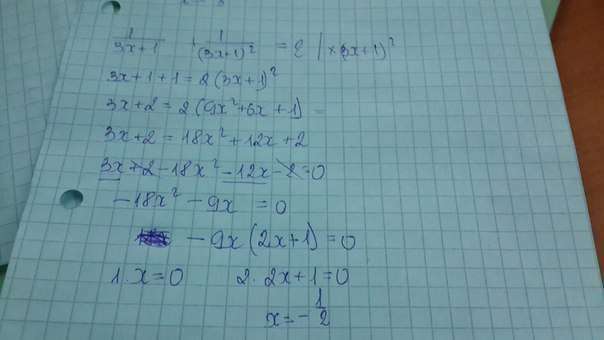 1/(3x+1) + 1/(3x+1)² = 2 | ×(3x+1)²
3x+1+1=2(3x+1)²
3x+2=2(9x²+6x+1)
3x+2=18x²+12x+2
3x+2-18x²-12x-2=0
-18x²-9x=0
-9x(2x+1)=0
1. x=0 2. 2x+1=0
x=-1/2